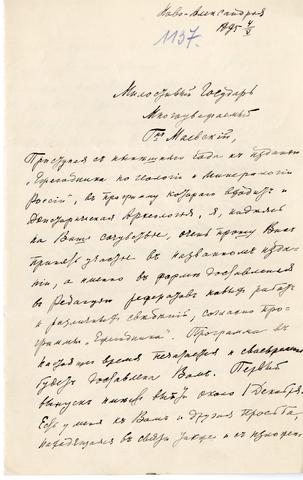 Ново-Александрия
1895 4/V
1137.
Милостивый Государь
Многоуважаемый
Гнъ Маевскій,
Приступая съ нынѣшняго года къ изданію
„Ежегодника по геологіи и минералогіи
Россіи", въ программу котораго входитъ и
доисторическая Археологія, я, надѣясь
на Ваше сочувствіе, очень прошу Васъ
принять участіе въ названномъ изда-
ніи, а именно въ формѣ доставленія
въ Редакцію рефератовъ новыхъ работъ
и различныхъ свѣдѣній, согласно про-
граммы „Ежегодника". Программа въ
настоящее время печатается и своевременно
будетъ доставлена Вамъ. Первый
выпускъ выйдетъ около 1 Декабря.
Есть у меня къ Вамъ и другая просьба,
находящаяся въ связи также и съ